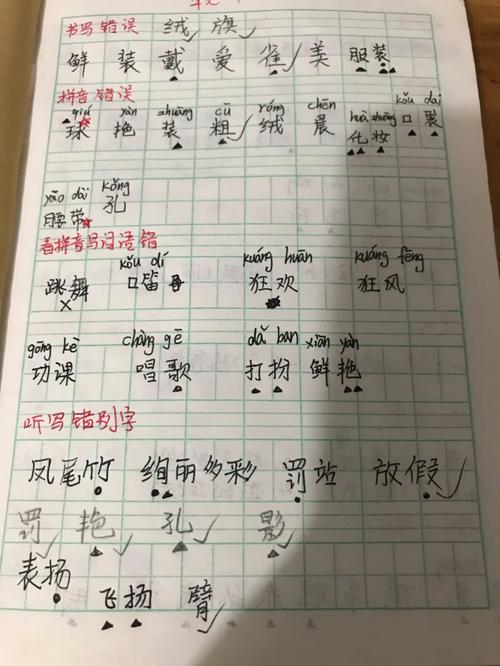 书写错误 绒 旗
鲜 装 戴 爱 雀 美 服装
拼音错误
qiú yàn zhuāng cū róng chén huà zhuāng kǒu dai
球 艳 装 粗 绒 晨 化妆 口袋
yāo dài kǒng
腰带 孔
看拼音写词语错
kǒu dí kuáng huān kuáng fēng
跳舞 口笛 狂欢 狂风
gōng kè chàng gē dǎ ban xiān yàn
功课 唱歌 打扮 鲜艳
听写错别字
凤尾竹 绚丽多彩 罚站 放假
罚 艳 孔 影
表扬
飞扬 臂